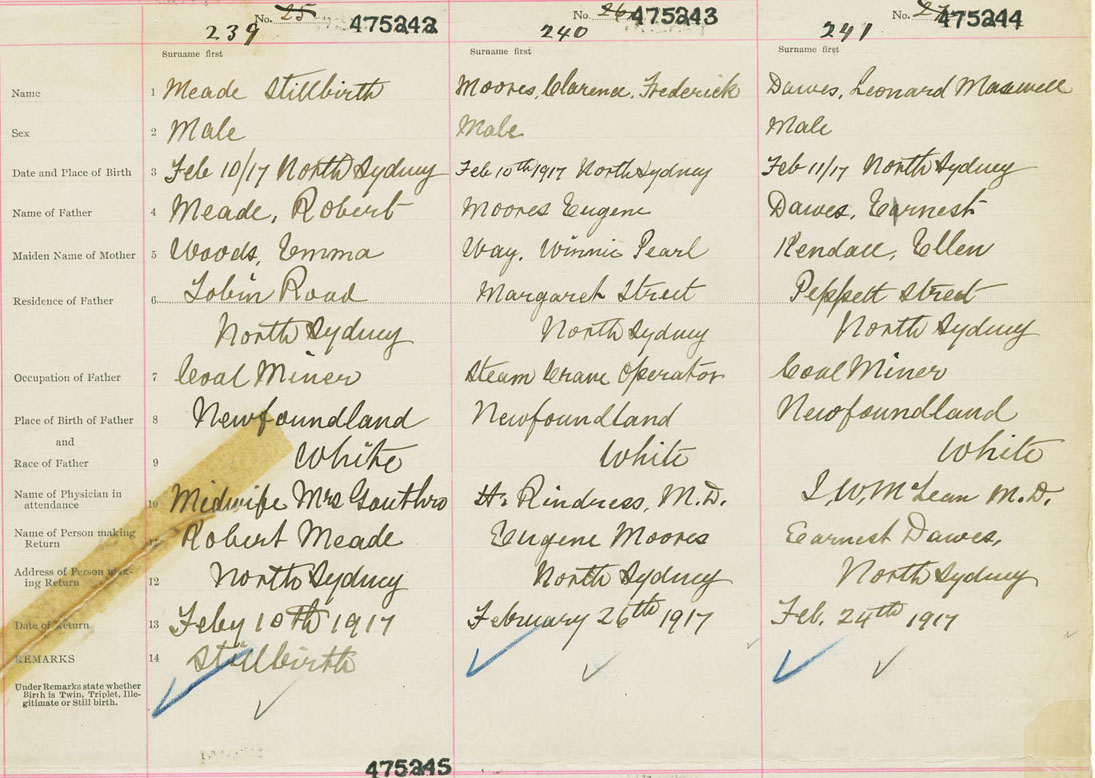 No. 25 475242 No. 26 475243 No. 27 475244
239 240 241
Surname first Surname first Surname first
Name 1 Meade Stillbirth Moores, Clarence. Frederick Dawes, Leonard Maxwell
Sex 2 Male Male Male
Date and Place of Birth 3 Feb 10/17 North Sydney Feb 10th 1917 North Sydney Feb 11/17 North Sydney
Name of Father 4 Meade, Robert Moores Eugene Dawes, Earnest
Maiden Name of Mother 5 Woods, Emma Way, Winnie Pearl Kendall, Ellen
Residence of Father 6 Tobin Road Margaret Street Peppett Street
North Sydney North Sydney North Sydney
Occupation of Father 7 Coal Miner Steam Crane Operator Coal Miner
Place of Birth of Father 8 Newfoundland Newfoundland Newfoundland
and
Race of Father 9 White White White
Name of Physician in
attendance 10 Midwife Mrs Gouthro H. Rindress, M.D. J.W. McLean M.D.
Name of Person making
Return Robert Meade Eugene Moores Earnest Dawes,
Address of Person mak-
ing Return 12 North Sydney North Sydney North Sydney
Date of Return 13 Feby 10th 1917 February 26th 1917 Feb. 24th 1917
REMARKS 14 Stillbirth
Under Remarks state whether
Birth is Twin, Triplet, Ille-
gitimate or Still birth.
475245